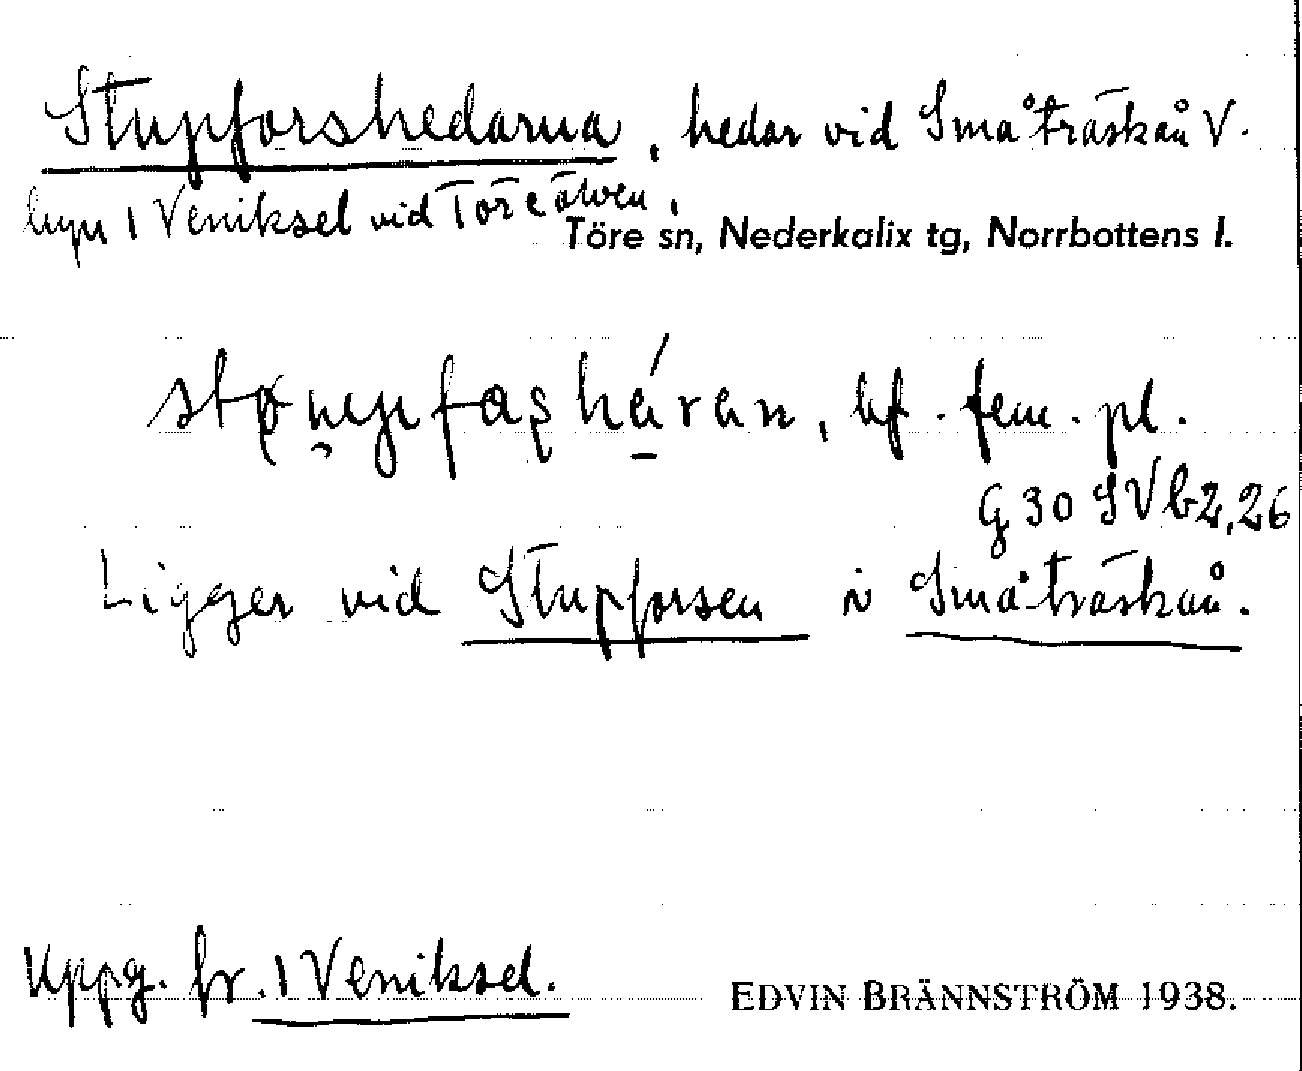 Stupforshedarna, hedar vid Småträskån V.
byn 1 Veniksel vid Töreälven,
Töre sn, Nederkalix tg, Norrbottens l.
bf. fem. pl.
G 30 SVb2,26
Ligger vid Stupforsen i Småträskån.
Uppg. fr. 1 Veniksel.
EDVIN BRÄNNSTRÖM 1938.